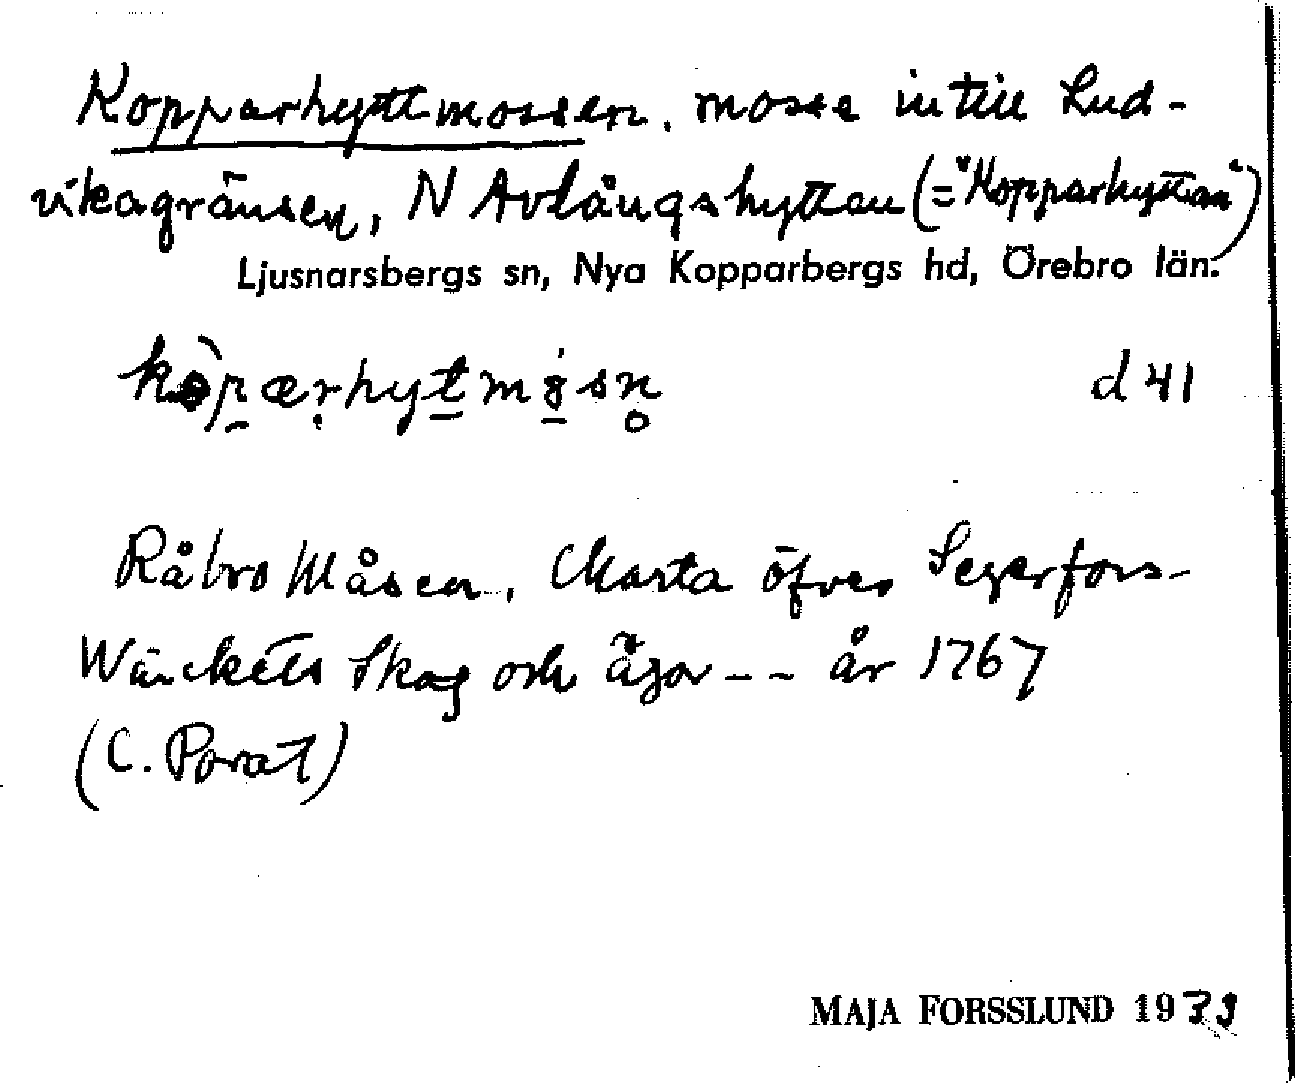 Kopparhyttmossen. mosse intill Lud-
vikagränsen, N Avlångshyttan (="Kopparhyttan")
Ljusnarsbergs sn, Nya Kopparbergs hd, Örebro län.
d 41
Råbro Måsen. Charta öfver Segerfors-
Wärckets Skog och ägor -- år 1767
(C. Porat)
MAJA FORSSLUND 1939